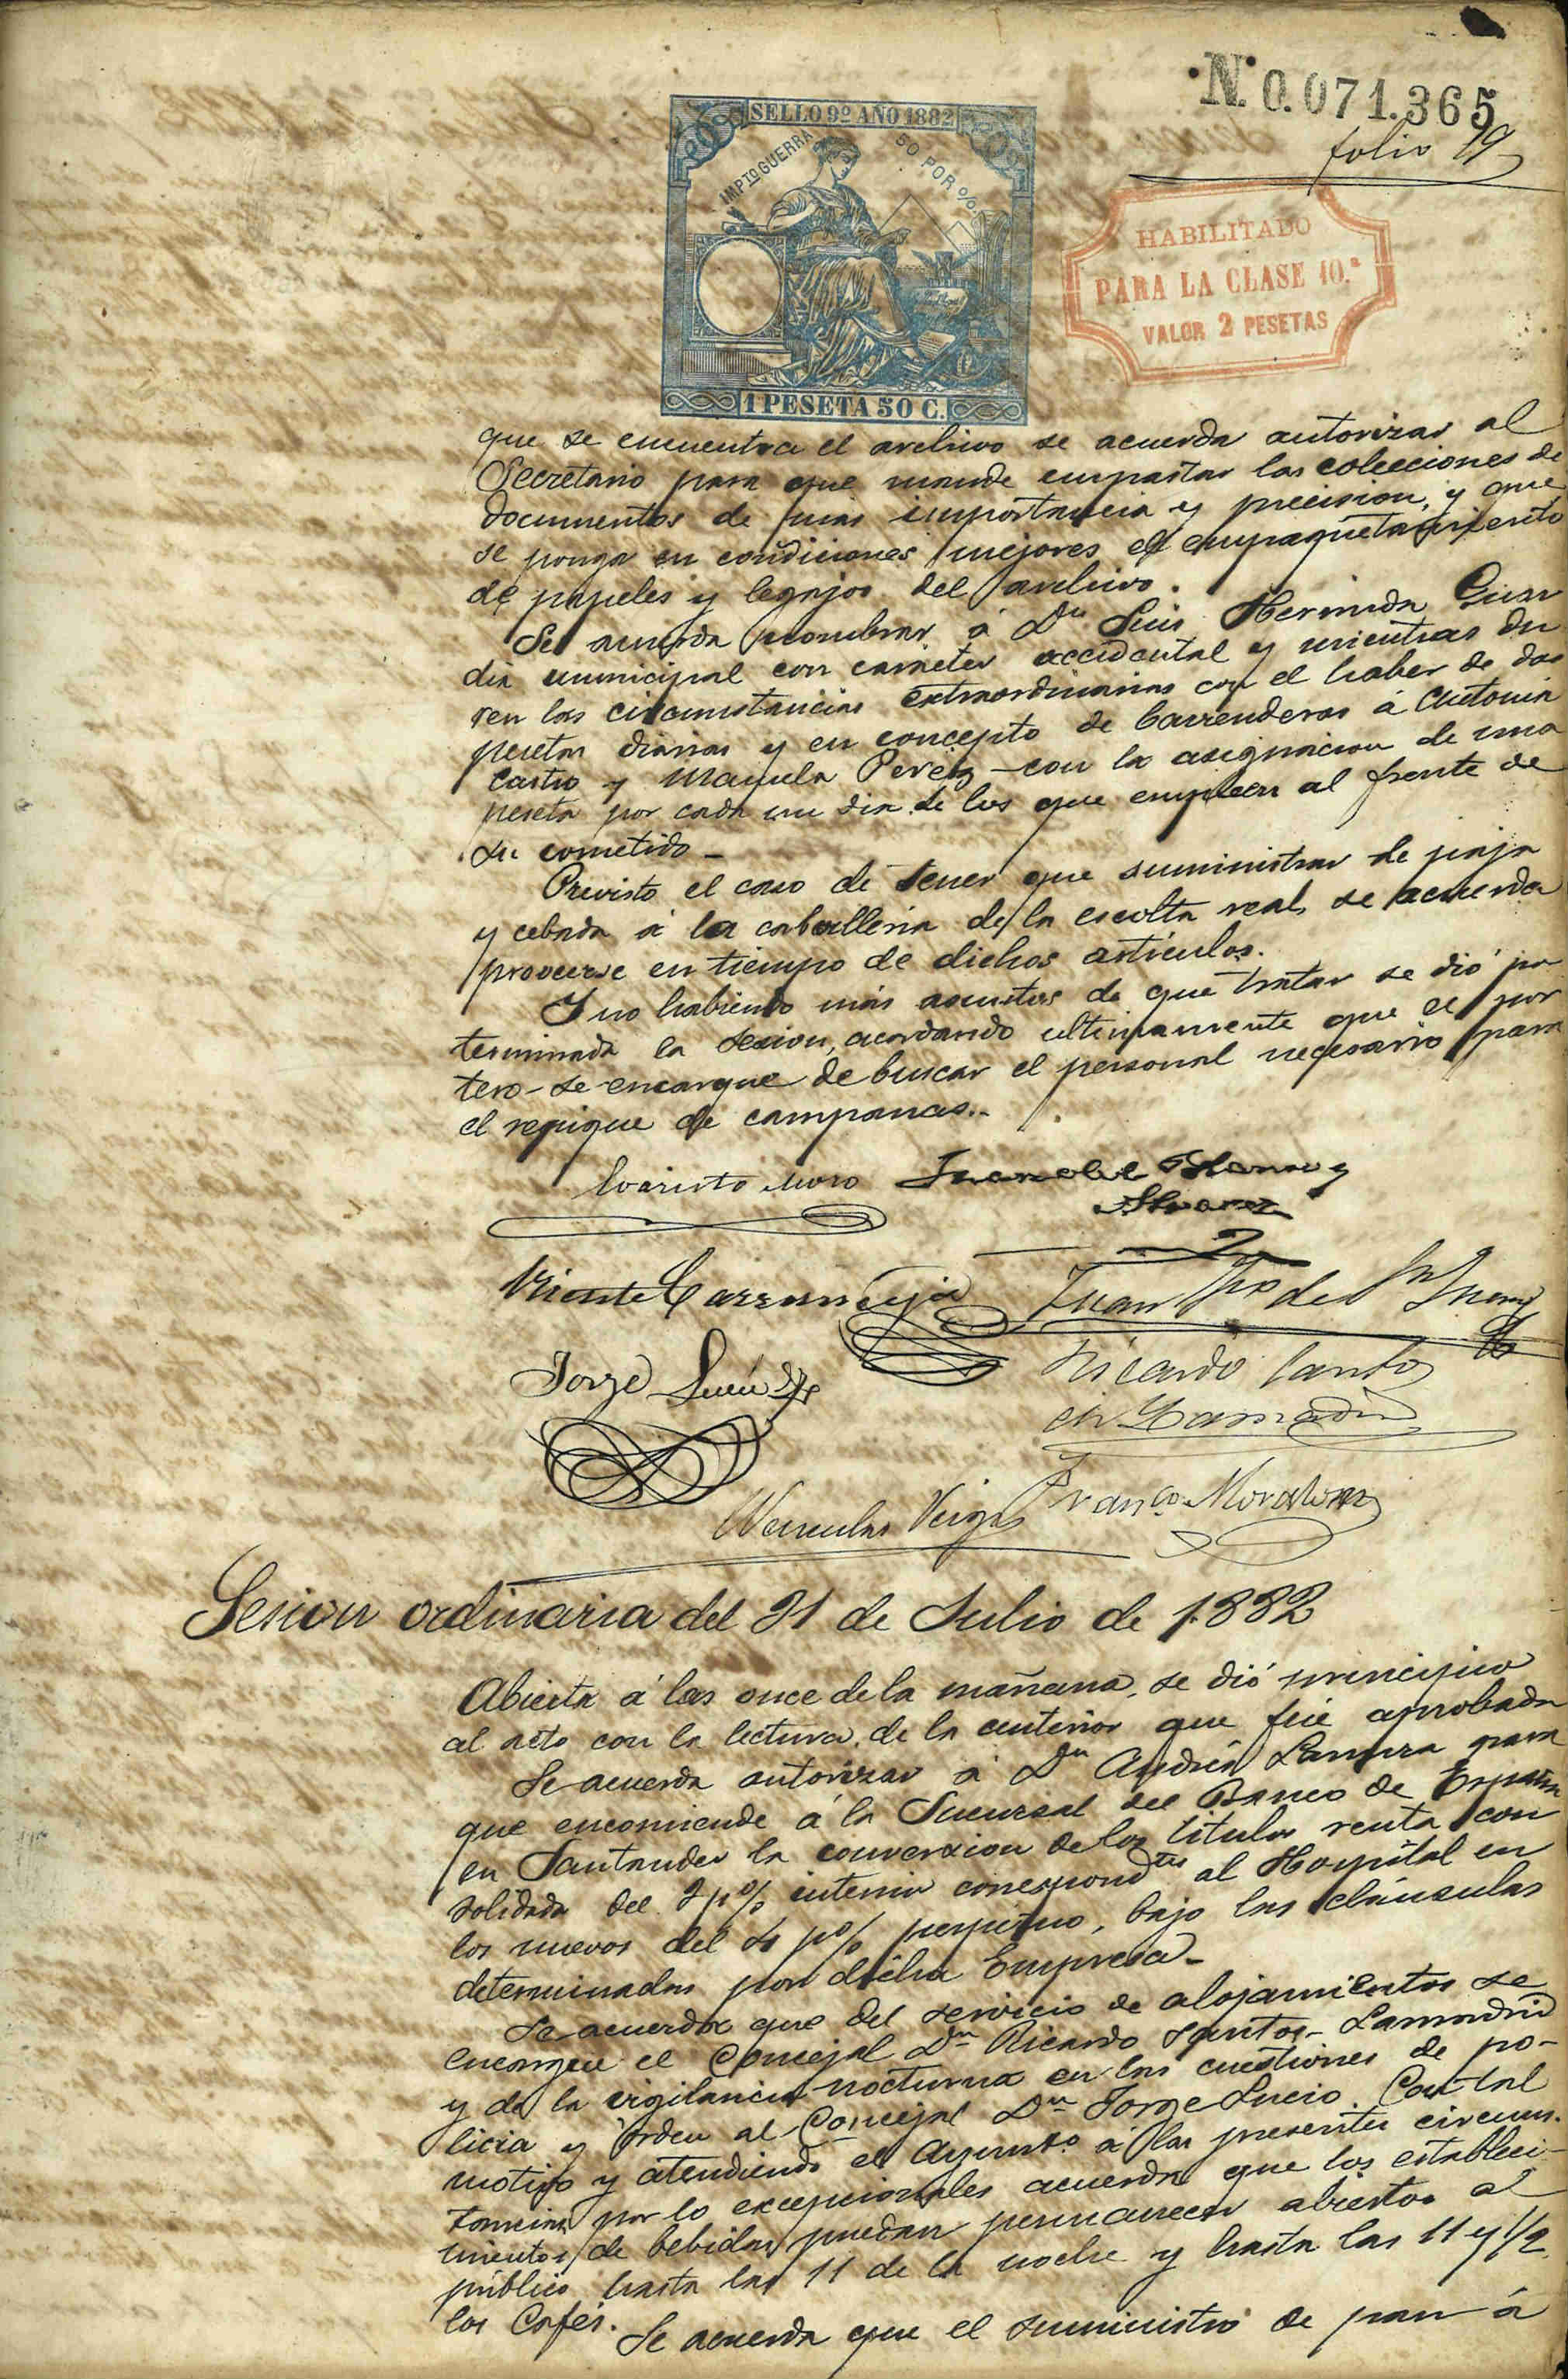 N. 0.071.365
folio 19
SELLO 9º AÑO 1882
IMPTO GUERRA 50 POR %.
HABILITADO
PARA LA CLASE 10.ª
VALOR 2 PESETAS
1 PESETA 50 C.
que se encuentra el archivo se acuerda autorizar al
Secretario para que mande empastar las colecciones de
documentos de mas importancia y precision, y que
se ponga en condiciones mejores el empaquetamiento
de papeles y legajos del archivo.
Se acuerda nombrar á Dn Luis Hermida Guar
dia municipal con caracter accidental y mientras du
ren las circunstancias extraordinarias con el haber de dos
pesetas diarias y en concepto de barrenderas á Antonia
Castro y Manuela Perez - con la asignacion de una
peseta por cada un dia de los que empleen al frente de
su cometido -
Previsto el caso de tener que suministrar de paja
y cebada á la caballeria de la escolta real, se acuerda
proveerse en tiempo de dichos artículos.
Y no habiendo más asuntos de que tratar se dió por
terminada la sesion, acordando ultimamente que el por
tero - se encargue de buscar el personal necesario para
el repique de campanas..
Evaristo Moro
Alvarez
Vicente Carranceja Juan
Jorge Lucio Ricardo Santos
Lamadrid
Wenceslao Veiga Franco. Moralon
Sesion ordinaria del 31 de Julio de 1882
Abierta á las once de la mañana, se dió principio
al acto con la lectura de la anterior que fué aprobada
Se acuerda autorizar á Dn Andrés Lamera para
que encomiende á la Sucursal del Banco de España
en Santander la conversion de los titulos renta con
solidada del 3 p% interior correspondtes al Hospital en
los nuevos del 4 p% perpetuo, bajo las cláusulas
determinadas por dicha Empresa -
Se acuerda que del servicio de alojamientos se
encargue el Concejal Dn Ricardo Santos - Lamadrid
y de la vigilancia nocturna en las cuestiones de po-
licia y orden al Concejal Dn Jorge Lucio. Con tal
motivo y atendiendo el Ayunto. á las presentes circuns.
tancias por lo excepcionales acuerda que los estableci-
mientos de bebidas puedan permanecer abiertos al
público hasta las 11 de la noche y hasta las 11 y 1/2
los Cafés. Se acuerda que el suministro de pan á